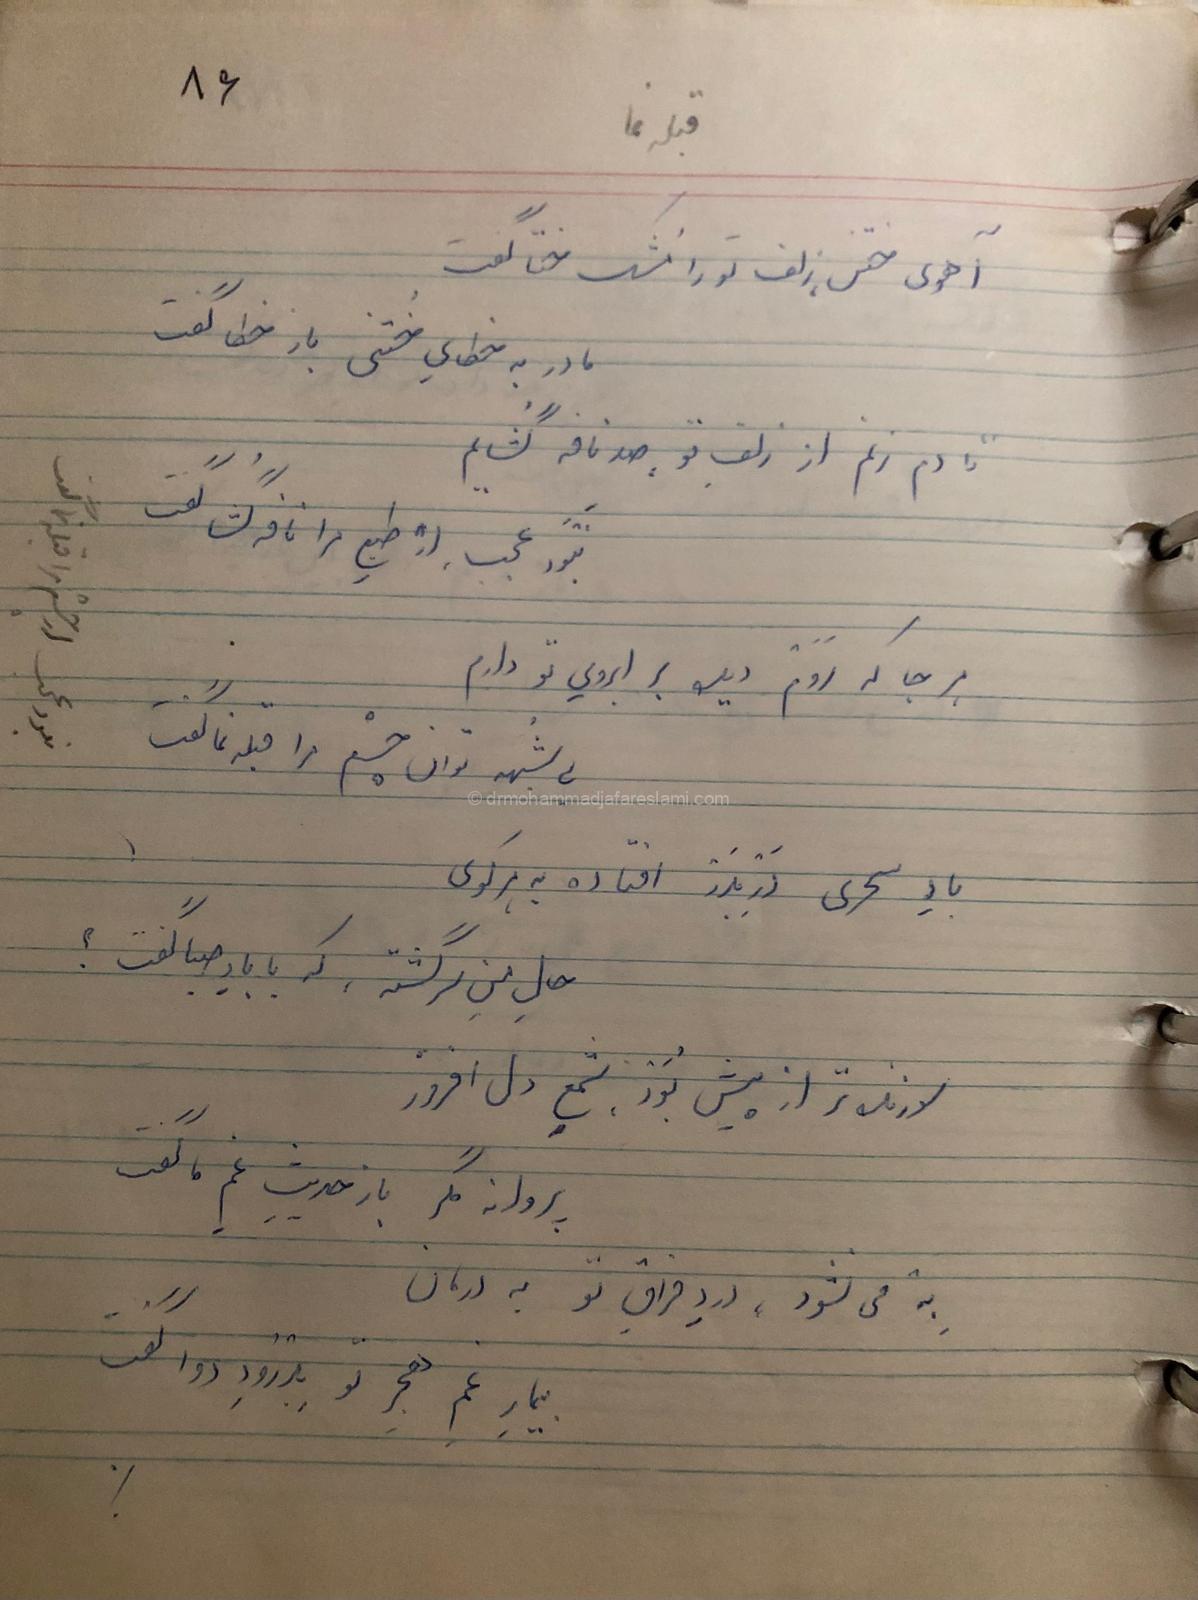 ۸۶
قبله نما
آهوی ختن زلف تو را مُشک ختا گفت
مادر به خطایِ خُتنی باز خطا گفت
تا دم زنم از زلفِ تو، صد نافه گُشایم
نَبُوَد عجب، ار طبعِ مرا نافه گُشا گفت
هر جا که رَوَم دیده بر ابرویِ تو دارم
بی شُبهه توان چشْمِ مرا قبله نما گفت
نبود عجب ار چشْم مرا قبله نما گفت
بادِ سحری دَر بدَر افتاده به هر کوی
حالِ منِ سرگشته، که با بادِ صبا گفت؟
سوزنده تر از پیش بُوَد، شمعِ دل افروز
پروانه مگر باز حدیثِ غمِ ما گفت
بِه می نشود، دردِ فراقِ تو به درمان
بیمارِ غمِ هجرِ تو بدرودِ دوا گفت
© drmohammadjafareslami.com